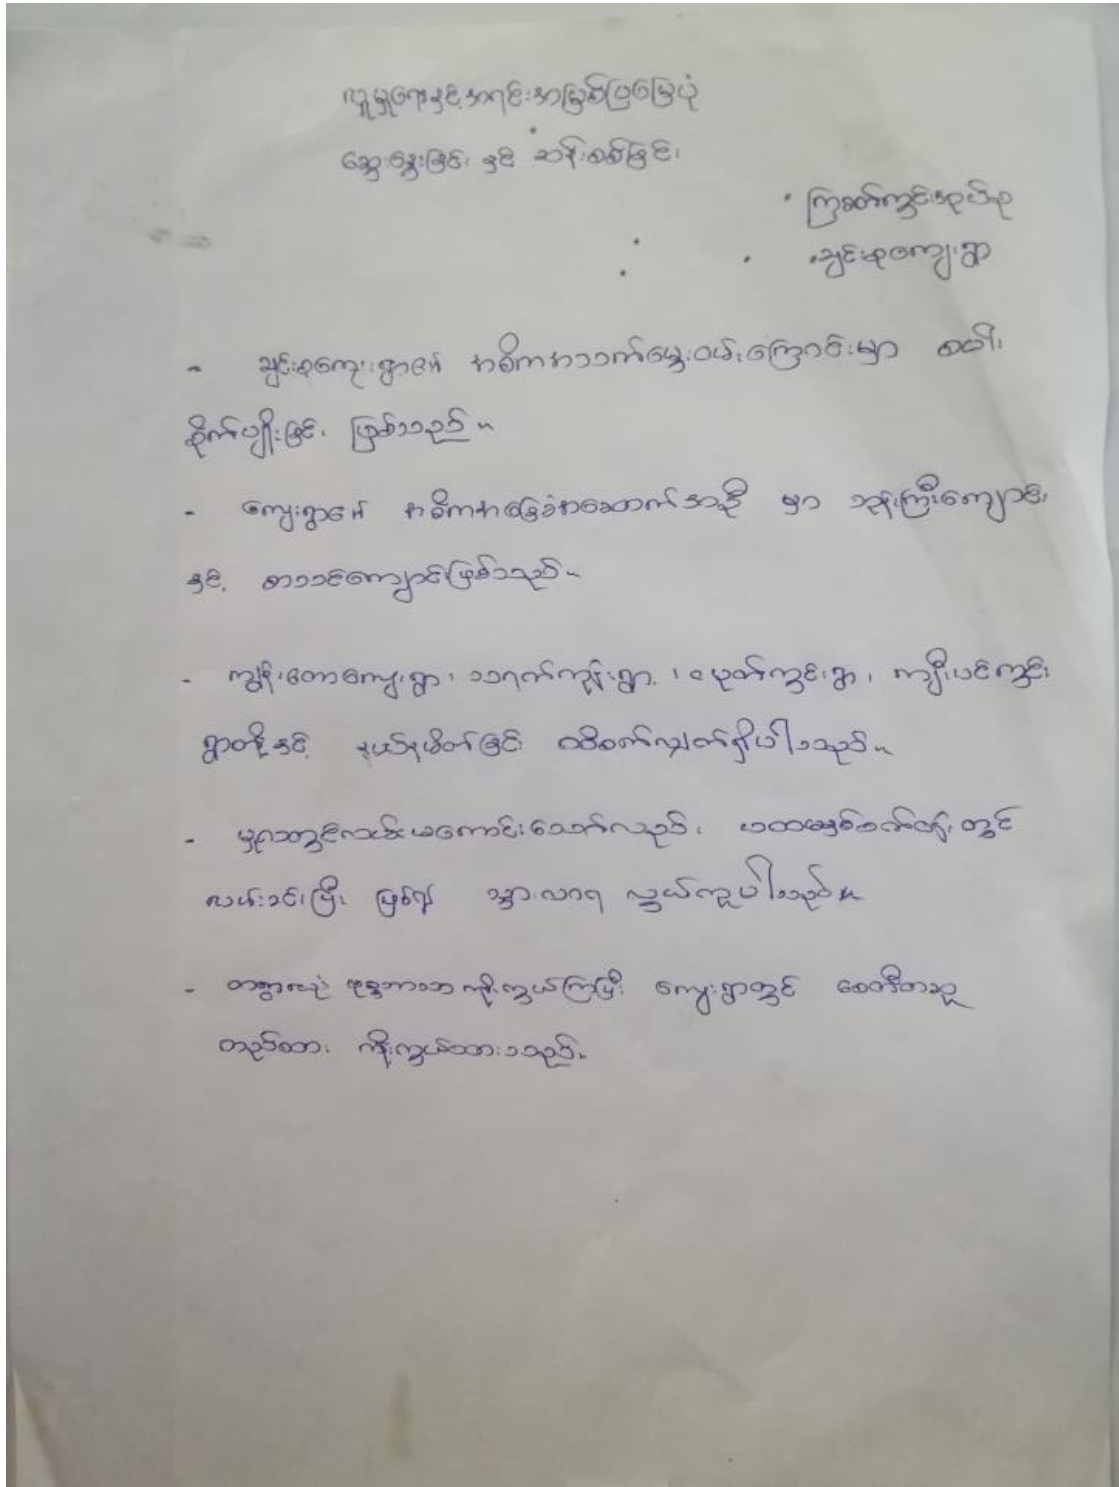 လူမှုရေးနှင့်အရင်းအမြစ်ပြမြေပုံ
ဆွေးနွေးခြင်း နှင့် ဆန်းစစ်ခြင်း
ကြခတ်ကွင်းအုပ်စု
ချင်းစုကျေးရွာ
- ချင်းစုကျေးရွာ၏ အဓိကအသက်မွေးဝမ်းကြောင်းမှာ စပါး
စိုက်ပျိုးခြင်း ဖြစ်သည်။
- ကျေးရွာ၏ အဓိကအခြေခံအဆောက်အဦ မှာ ဘုန်းကြီးကျောင်း
နှင့် စာသင်ကျောင်းဖြစ်သည်။
- ကျွန်းတောကျေးရွာ၊ သရက်ကုန်းရွာ၊ ငမုတ်ကွင်းရွာ၊ ကျီးပင်ကွင်း
ရွာတို့နှင့် နယ်နမိတ်ခြင်း ထိစပ်လျှက်ရှိပါသည်။
- မူလတွင်လမ်းမကောင်းသော်လည်း၊ ပထမနှစ်စက်ဝန်းတွင်
လမ်းခင်းပြီး ဖြစ်၍ သွားလာရ လွယ်ကူပါသည်။
- တစ်ရွာလုံး ဗုဒ္ဓဘာသာ ကိုးကွယ်ကြပြီး ကျေးရွာတွင် စေတီတဆူ
တည်ထား ကိုးကွယ်ထားသည်။